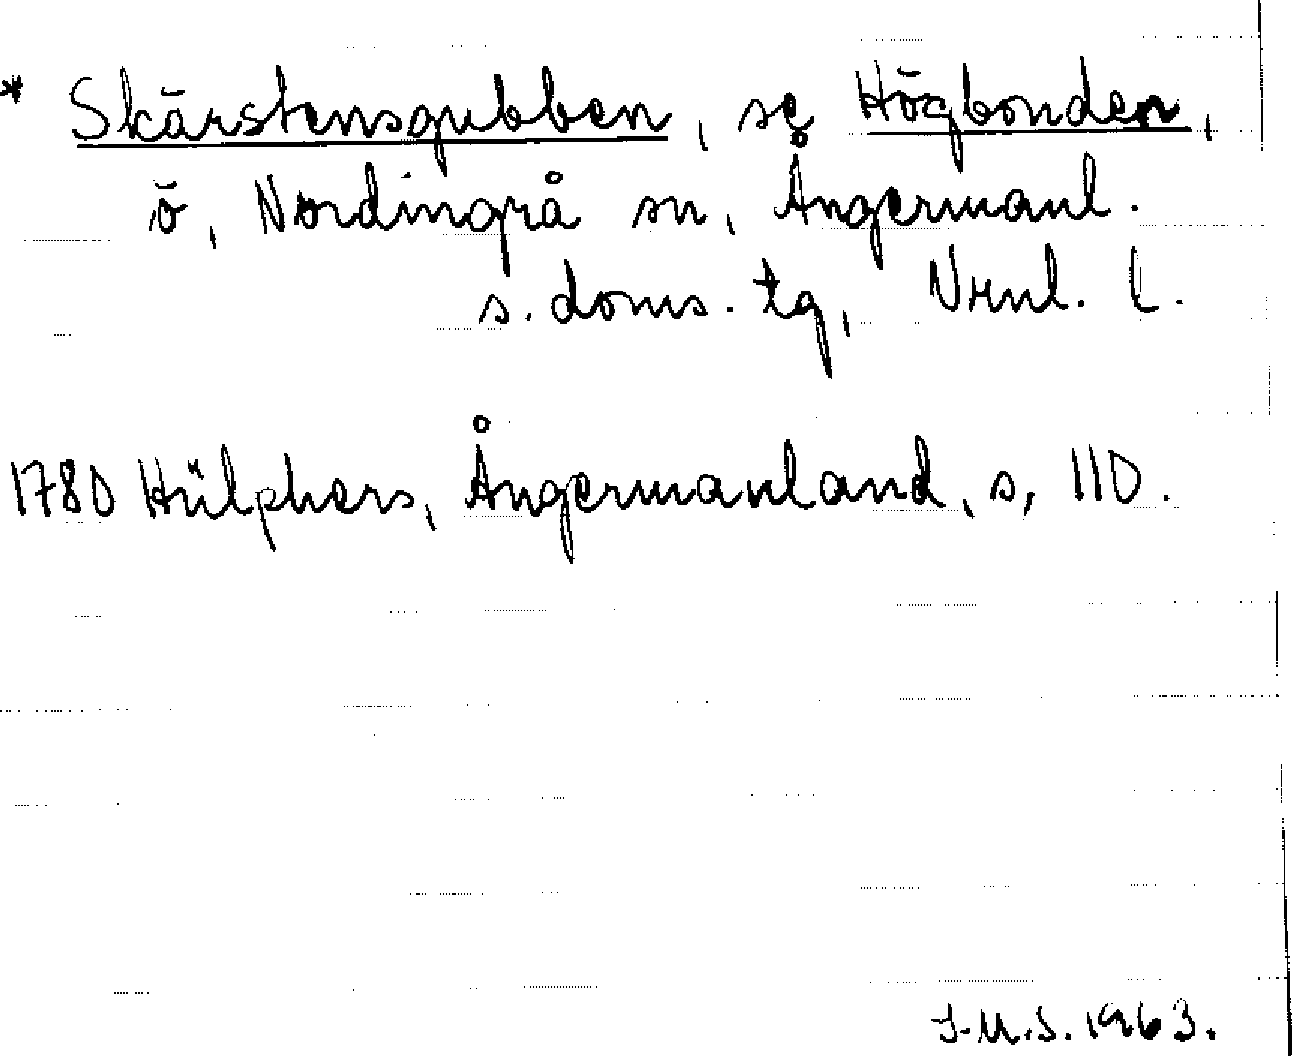 * Skärstensgubben, se Högbonden,
ö, Nordingrå sn, Ångermanl.
s. doms. tg, Vrnl. l.
1780 Hülphers, Ångermanland, s, 110.
J.M.S. 1963.